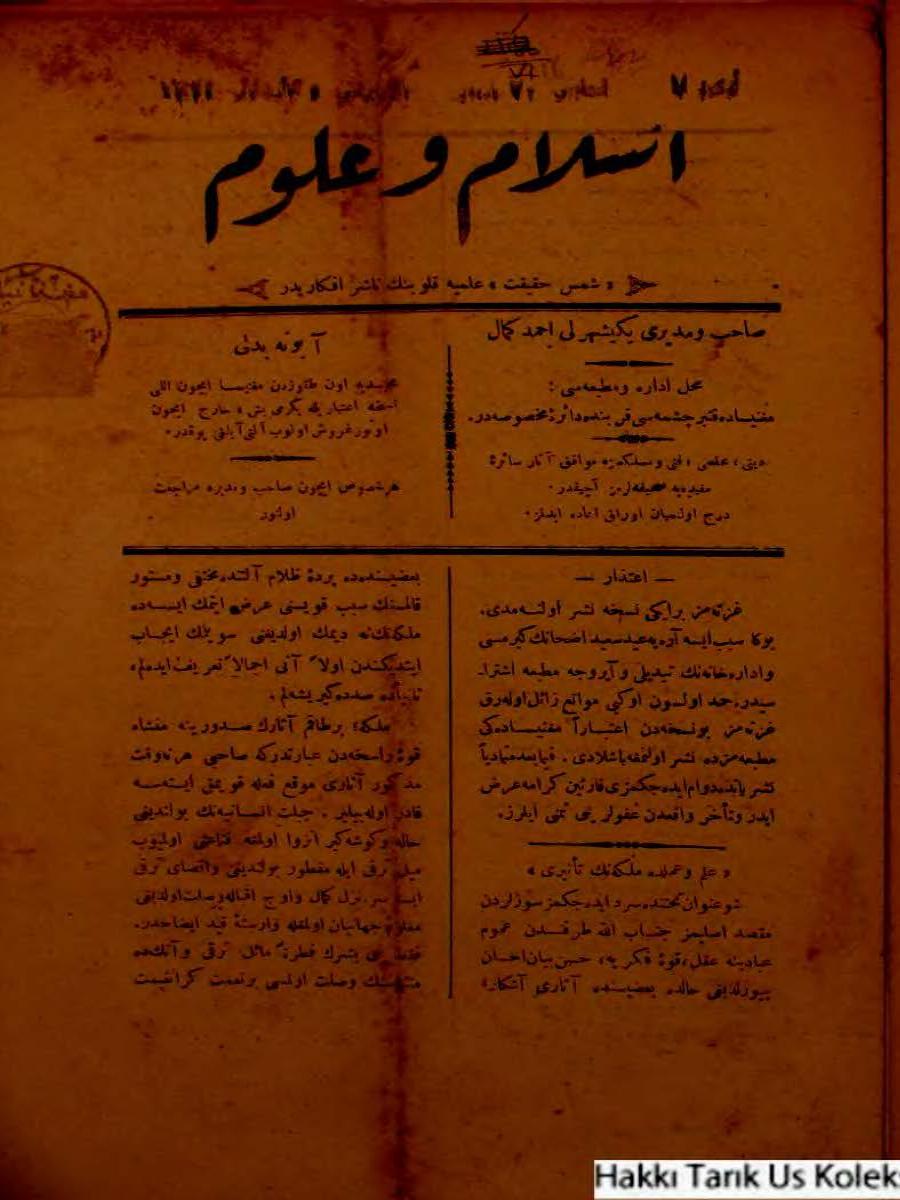 اسلام و علوم
« شمس حقیقت » علمیه قلوبنك ناشر افكاریدر
صاحب ومدیری یكیشهرلی احمد كمال
محل اداره ومطبعه‌سی :
مغنیساده قنبر چشمه‌سی قربنده دائرۀ مخصوصه‌در.
دینی، علمی، فنی ومسلكمزه موافق آثار سائرۀ
مفیده‌یه صحیفه‌لرمز آچیقدر.
درج اولنمیان اوراق اعاده ایدلمز.
آبونه بدلی
اون طقوزدن مغنیسا ایچون اللی
نسخه اعتباریله یكرمی بش، خارج ایچون
اوتوز غروش اولوب آلتی آیلغی یوقدر.
هرخصوص ایچون صاحب ومدیره مراجعت
اولنور
— اعتذار —
غزته‌مز برایكی نسخه نشر اولنه‌مدی.
بوكا سبب ایسه آره‌یه عید سعید اضحانك كیرمسی
واداره‌خانه‌نك تبدیلی وآیروجه مطبعه اشترا-
سیدر. حمد اولسون اوكبی موانع زائل اوله‌رق
غزته‌مز بونسخه‌دن اعتباراً مغنیساده‌كی
مطبعه‌مزده نشر اولنمغه باشلادی. فیمابعد متمادیاً
نشریاتده دوام ایده‌جكمزی قارئین كرامه عرض
ایدر وتأخر واقعدن عفولرینی تمنی ایلرز.
« علم وعملده ملكه‌نك تأثیری »
شو عنوان تحتنده سرد ایده‌جكمز سوزلردن
مقصد اصلیمز جناب الله طرفندن عموم
عبادینه عقل، قوۀ فكریه، حسن بیان احسان
بیورلدیغی حالده بعضیسنده آثاری آشكار،
بعضیسنده‌ده پردۀ ظلام آلتنده مختفی ومستور
قالمسنك سبب قویسنی عرض ایتمك ایسه‌ده
ملكه‌نك نه دیمك اولدیغنی سویلمك ایجاب
ایتدیكندن اولا آنی اجمالاً تعریف ایده‌لم،
ثانیاً ده صدده كیریشه‌لم.
ملكه؛ برطاقم آثارك صدورینه منشاء
قوۀ راسخه‌دن عبارتدركه صاحبی هر نه‌وقت
مذكور آثاری موقع فعله قویمق ایسته‌سه
قادر اوله‌بیلیر. جبلت انسانیه‌نك بولندیغی
حالده كوشه‌كیر انزوا اولمغه قناعتی اولمیوب
میل ترقی ایله مفطور بولندیغی واقصای ترقی
ایسه سرمنزل كمال واوج اقباله وصلت اولدیغی
معلوم جهانیان اولمغله وارستۀ قید ایضاحدر.
بشرك فطرةً مائل ترقی وآنكده
وصلت اولمسی برنعمت كرانقیمت
Hakkı Tarık Us Koleks